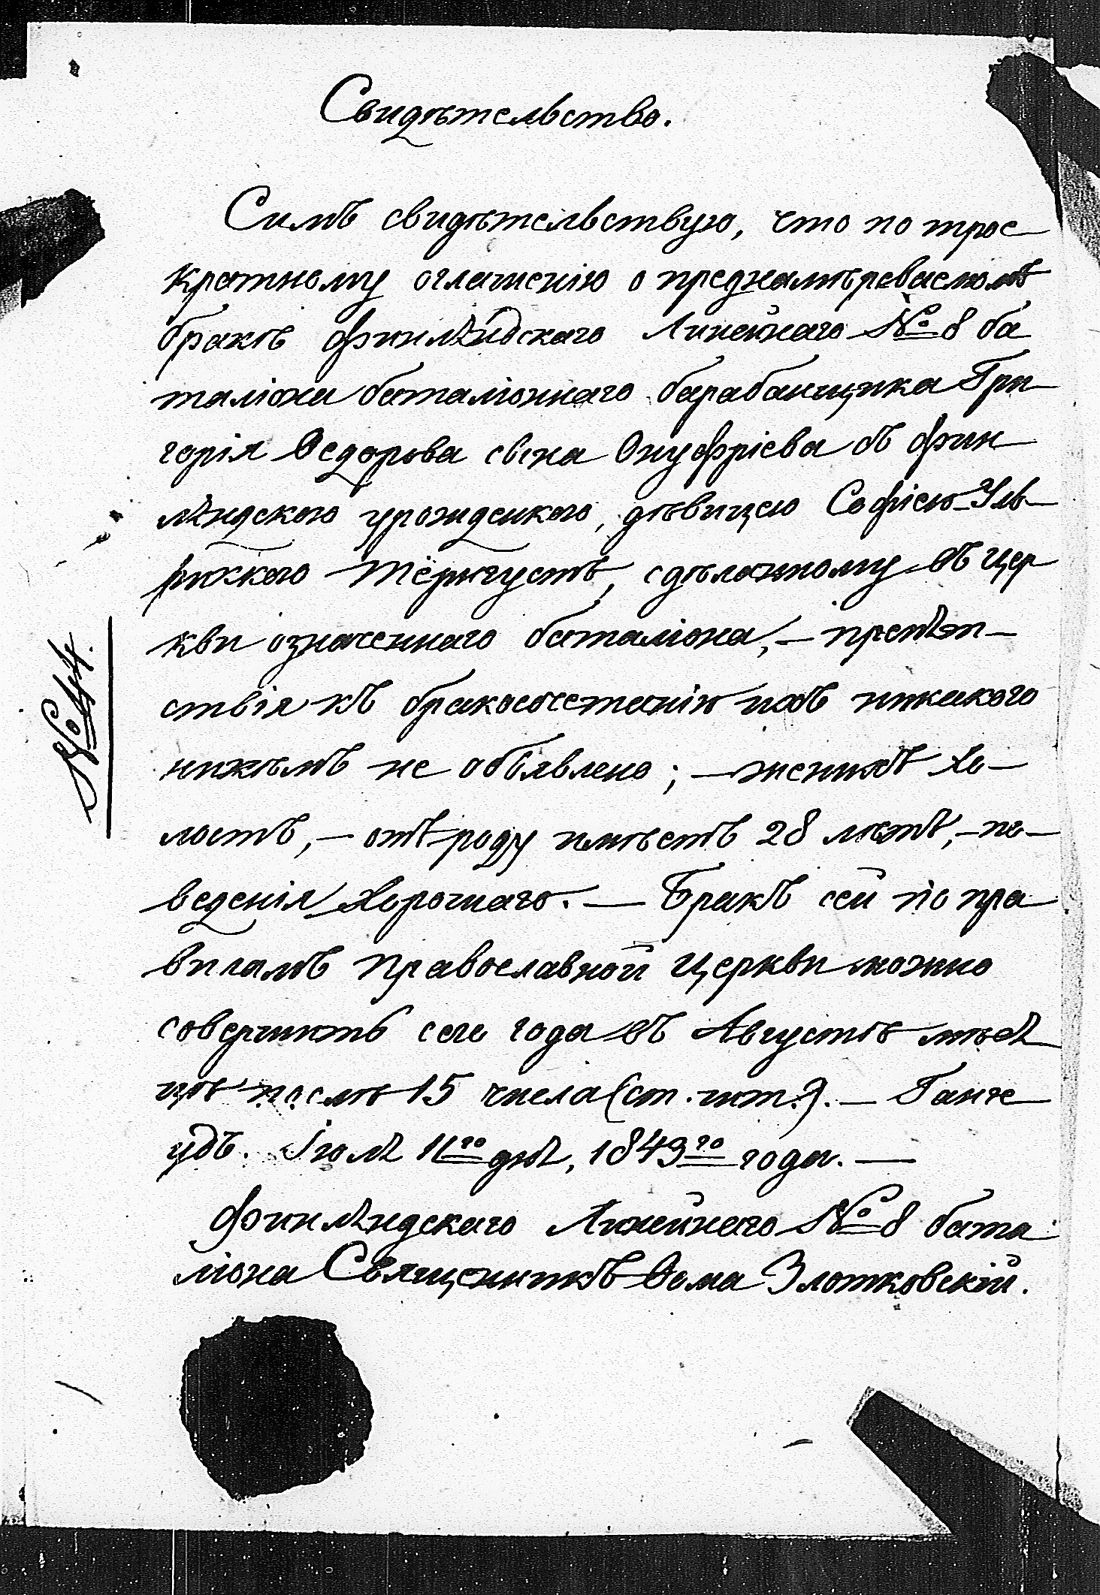 Свидѣтельство.
Симъ свидѣтельствую, что по трое-
кратному оглашенію о преднамѣреваемомъ
бракѣ Финляндскаго Линейнаго № 8 ба
таліона баталіоннаго барабанщика Гри-
горія Ѳедорова сына Онуфріева съ фин-
ляндскою урожденкою, дѣвицею Софіею Уль-
сдѣланному въ цер
кви означеннаго баталіона, — препят-
ствія къ бракосочетанію ихъ никакого
никѣмъ не объявлено; — женихъ хо-
лостъ, — отъ роду имѣетъ 28 лѣтъ, — по-
веденія хорошаго. — Бракъ сей по пра
виламъ Православной Церкви можно
совершить сего года въ Августѣ мѣся
цѣ послѣ 15 числа (ст. шт.). — Ганге
удъ. Іюля 11го дня, 1849го года. —
Финляндскаго Линейнаго № 8 бата
ліона Священникъ Ѳома Злотковскій.
№ 44.